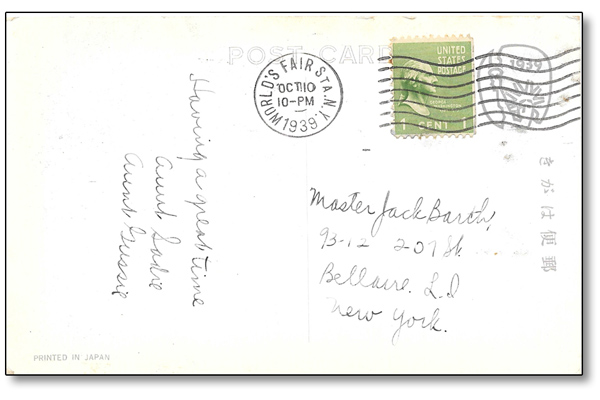 POST CARD
WORLD'S FAIR STA. N.Y.
OCT 10
10-PM
1939
UNITED
STATES
POSTAGE
GEORGE
WASHINGTON
1 CENT 1
1939
きがは便郵
Having a great time
Aunt Sadie
Aunt Gussie
Master Jack Barth,
93-12 207 St.
Bellaire. L.I
New York.
PRINTED IN JAPAN